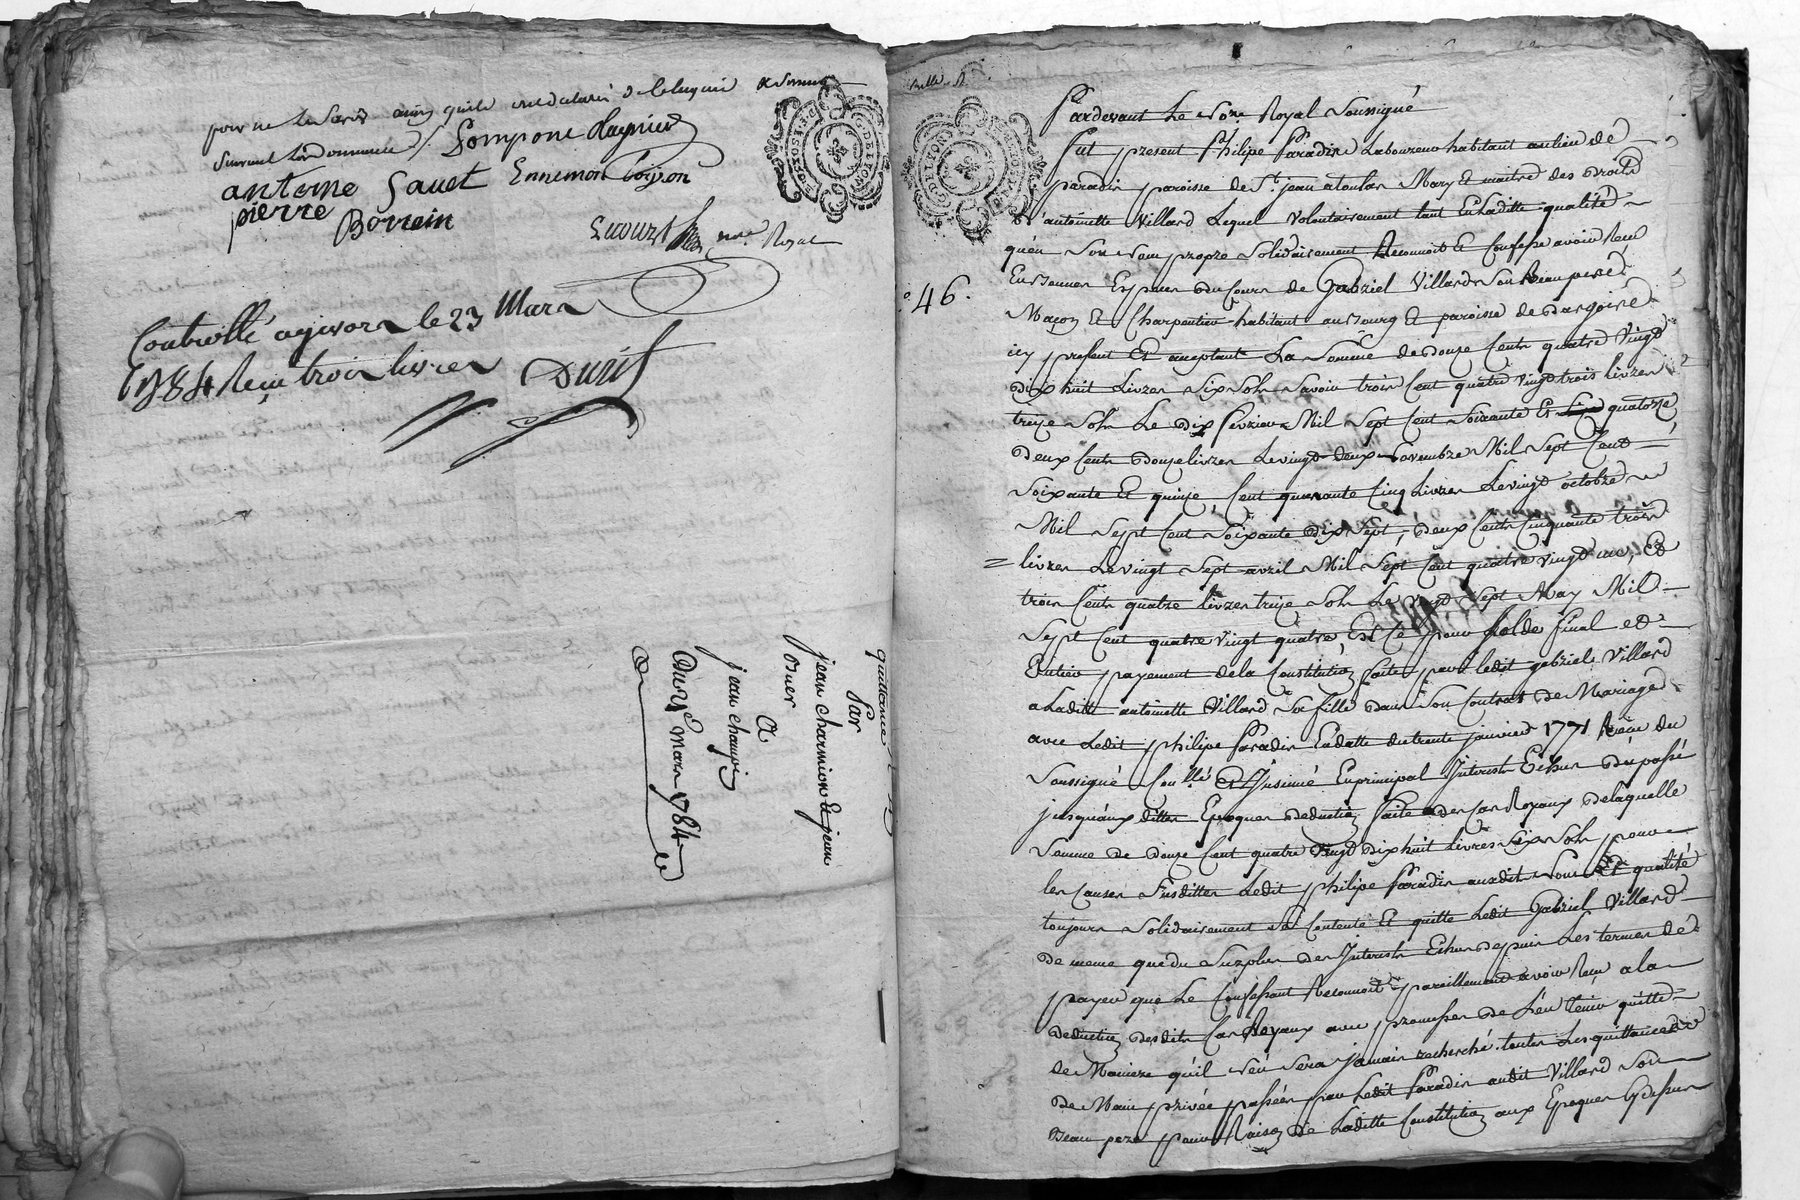 pour ne le savoir ainsy qu'ils ont déclaré de ce enquis & sommé
suivant l'ordonnance /. Pompone Raynied
antoine Sauet Ennemon Coignon
pierre
Borrein
nre Royal
Controllé a givors le 23 Mars
1784 Reçu trois livres Duris
quittance
Par
jean charmion & jean
osner
A
jean chauvin
Du 13e Mars 1784
G.DE LYON
46.
Pardevant Le Nore Royal Soussigné
fut present Philipe Paradin Laboureur habitant au lieu de
paradin paroisse de St jean atoulas Mary & maitre des droits
d'antoinette Villard Lequel volontairement tant En Laditte qualité
qu'en son nom propre solidairement Reconnoit & Confesse avoir Reçu
En Bonnes Espèces du Cours de Gabriel Villard son Beaupere
Maçon & Charpentier habitant au Bourg & paroisse de Dargoire
icy present Et acceptant La Somme de douze Cents quatre Vingt
Dix huit Livres Six Sols Savoir trois Cent quatre vingt trois livres
treize Sols Le dix fevrier Mil Sept Cent Soixante Et quatorze
Deux Cents douze livres Le vingt deux novembre Mil Sept Cent
Soixante Et quinze, Cent quarante Cinq Livres Le vingt octobre
Mil Sept Cent Soixante dix Sept, deux Cents Cinquante trois
livres Le vingt Sept avril Mil Sept Cent quatre vingt un, Et
trois Cents quatre livres treize Sols Le vingt Sept May Mil
Sept Cent quatre vingt quatre, Et Ce pour Solde final et
Entier payement de la Constitution faite par ledit gabriel Villard
a Laditte antoinette Villard Sa fille dans Son Contrat de Mariage
avec Ledit philipe Paradin En datte du trente janvier 1771 Reçu du
Soussigné Conllé Et Insinué En principal Interests Echus du passé
jusqu'aux dittes Epoques Deduction faite des Cas Royaux De laquelle
Somme de douze Cent quatre Vingt Dix huit Livres Six Sols pour
les Causes Susdittes Ledit philipe Paradin auxdits Noms Et qualité
toujours Solidairement Se Contente Et quitte Ledit Gabriel Villard
de meme que du Surplus des Interests Echus depuis Les termes de
payer que Le Confessant Reconnoit pareillement avoir Reçu a la
deduction desdits Cas Royaux avec promesse de L'en tenir quitte
de Maniere qu'il n'en Sera jamais recherché. toutes Les quittances
de Main privée passées par Ledit Paradin audit Villard Son
Beau pere pour Raison de Laditte Constitution aux Epoques Cydessus